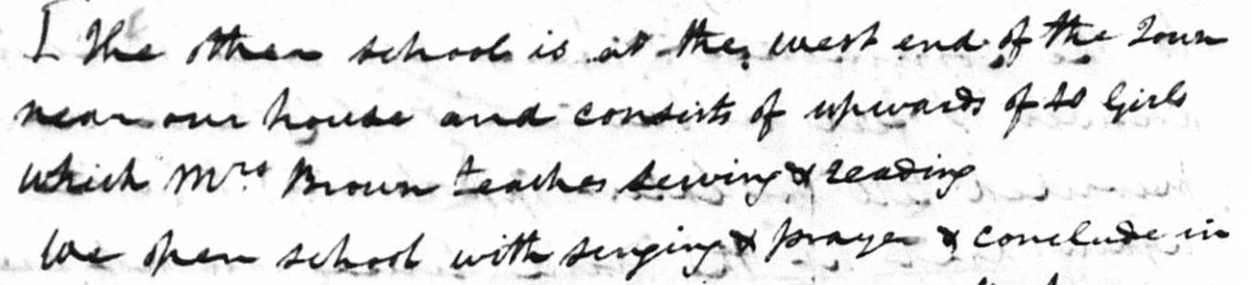 [ The other school is at the west end of the Town
near our house and consists of upwards of 40 Girls
which Mrs Brown teaches sewing & reading
We open school with singing & prayer & conclude in